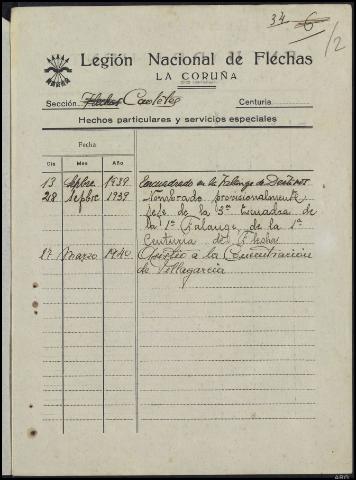 34 6
1/2
Legión Nacional de Flechas
LA CORUÑA
Sección Flechas Cadetes Centuria
Hechos particulares y servicios especiales
Fecha
Día Mes Año
13 Sepbre 1939 Encuadrado en la Falange de Destinos
28 Sepbre 1939 Nombrado provisionalmente
jefe de la 3ª Escuadra de
la 1ª Falange, de la 1ª
Centuria de Flechas
17 Marzo 1940 Asistió a la Concentración
de Villagarcia